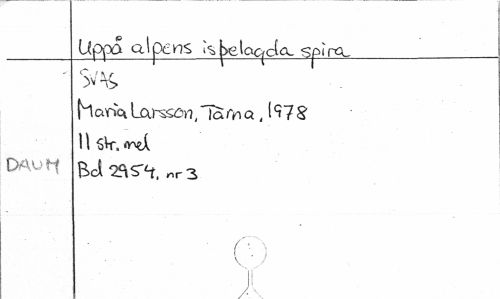 Uppå alpens ispelagda spira
SVAS
Maria Larsson, Tärna, 1978
11 str. mel
DAUM Bd 2954, nr 3